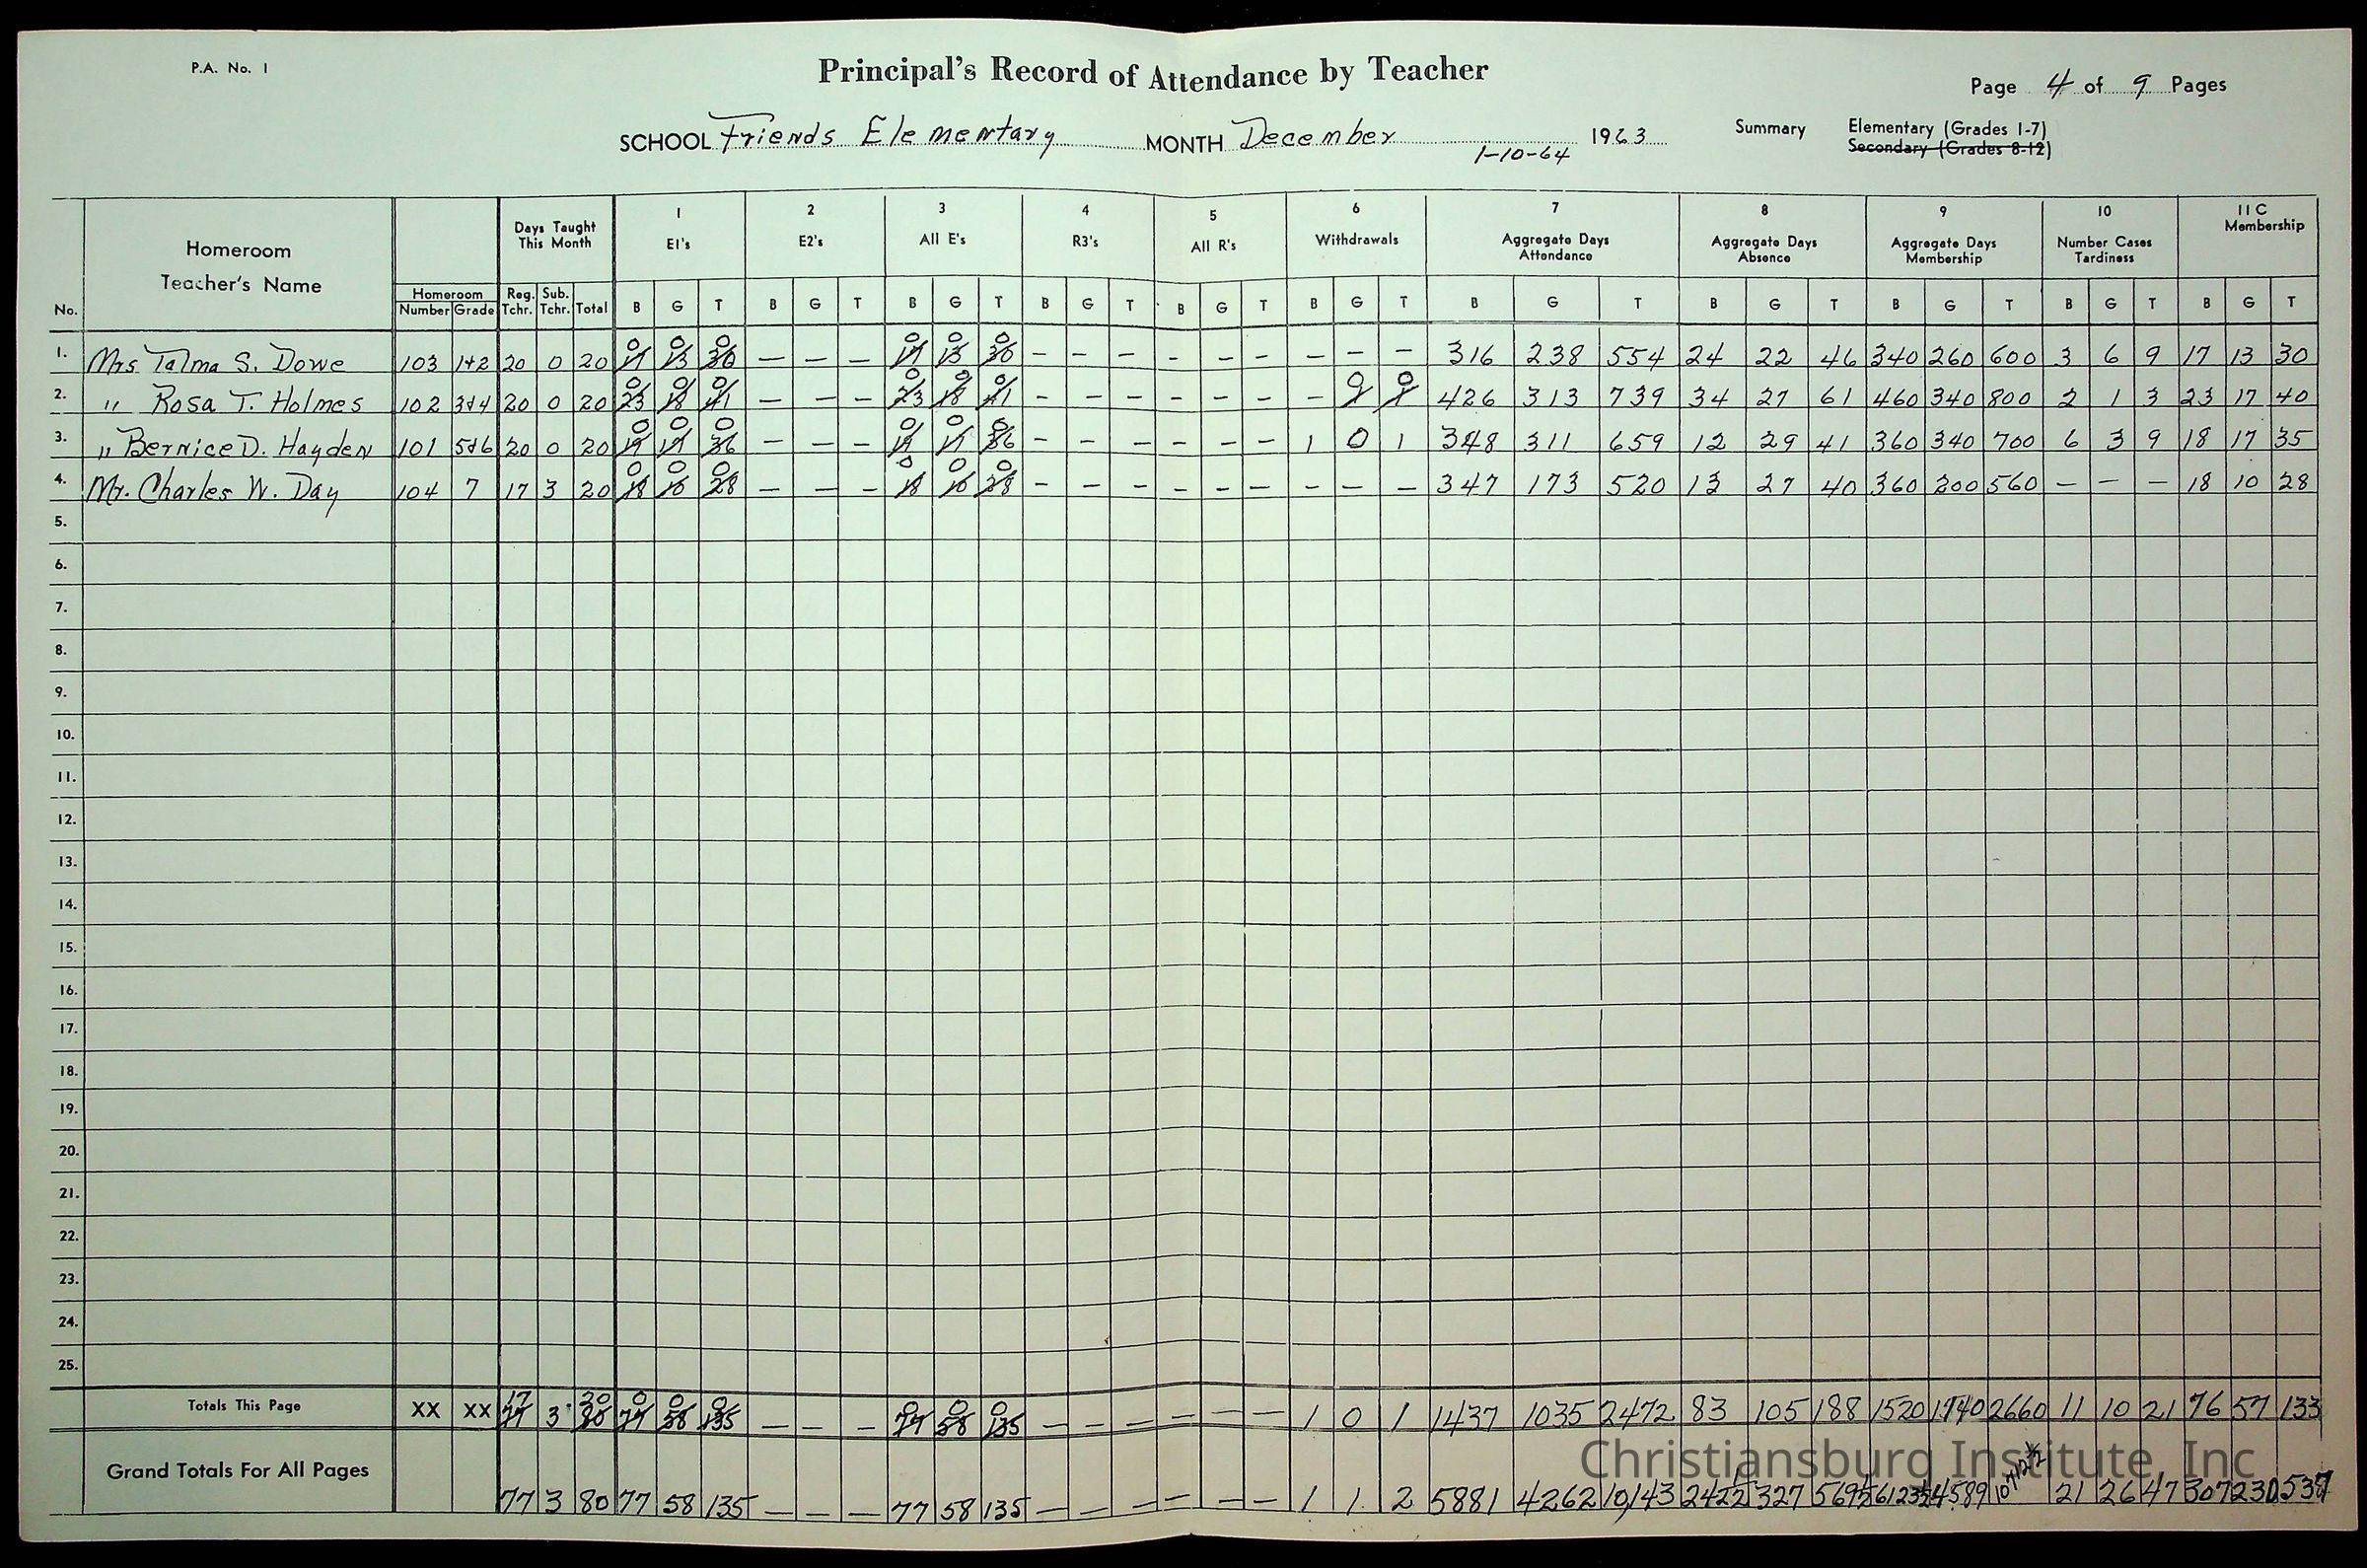 P.A. No. 1
Principal's Record of Attendance by Teacher
Page 4 of 9 Pages
SCHOOL Friends Elementary MONTH December 1963
1-10-64
Summary Elementary (Grades 1-7)
Secondary (Grades 8-12)
No. Homeroom Teacher's Name Homeroom Number Grade Days Taught This Month Reg. Tchr. Sub. Tchr. Total 1 E1's 2 E2's 3 All E's 4 R3's 5 All R's 6 Withdrawals 7 Aggregate Days Attendance 8 Aggregate Days Absence 9 Aggregate Days Membership 10 Number Cases Tardiness 11C Membership
B G T B G T B G T B G T B G T B G T B G T B G T B G T B G T B G T
1. Mrs Talma S. Dowe 103 1+2 20 0 20 0 0 0 — — — 0 0 0 — — — — — — — — — 316 238 554 24 22 46 340 260 600 3 6 9 17 13 30
2. " Rosa T. Holmes 102 3&4 20 0 20 0 0 0 — — — 0 0 0 — — — — — — — 0 0 426 313 739 34 27 61 460 340 800 2 1 3 23 17 40
3. " Bernice D. Hayden 101 5&6 20 0 20 0 0 0 — — — 0 0 0 — — — — — — 1 0 1 348 311 659 12 29 41 360 340 700 6 3 9 18 17 35
4. Mr. Charles W. Day 104 7 17 3 20 0 0 0 — — — 0 0 0 — — — — — — — — — 347 173 520 13 27 40 360 200 560 — — — 18 10 28
5.
6.
7.
8.
9.
10.
11.
12.
13.
14.
15.
16.
17.
18.
19.
20.
21.
22.
23.
24.
25.
Totals This Page XX XX 17 3 20 0 0 0 — — — 0 0 0 — — — — — — 1 0 1 1437 1035 2472 83 105 188 1520 1140 2660 11 10 21 76 57 133
Grand Totals For All Pages 77 3 80 77 58 135 — — — 77 58 135 — — — — — — 1 1 2 5881 4262 10,143 242½ 327 569½ 6123½ 4589 21 26 47 307 230 537
Christiansburg Institute, Inc